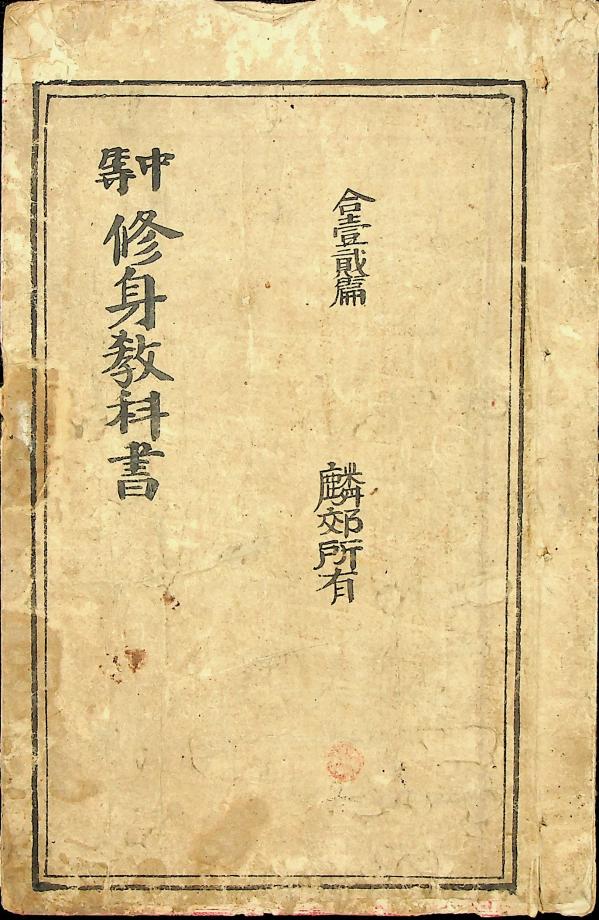 合壹貳篇
麟郊所有
中等
修身教科書